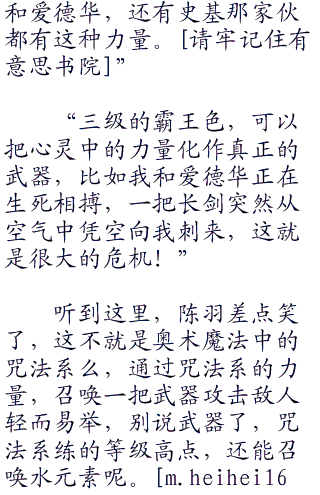 和爱德华，还有史基那家伙
都有这种力量。[请牢记住有
意思书院]”
“三级的霸王色，可以
把心灵中的力量化作真正的
武器，比如我和爱德华正在
生死相搏，一把长剑突然从
空气中凭空向我刺来，这就
是很大的危机！”
听到这里，陈羽差点笑
了，这不就是奥术魔法中的
咒法系么，通过咒法系的力
量，召唤一把武器攻击敌人
轻而易举，别说武器了，咒
法系练的等级高点，还能召
唤水元素呢。[m.heihei16